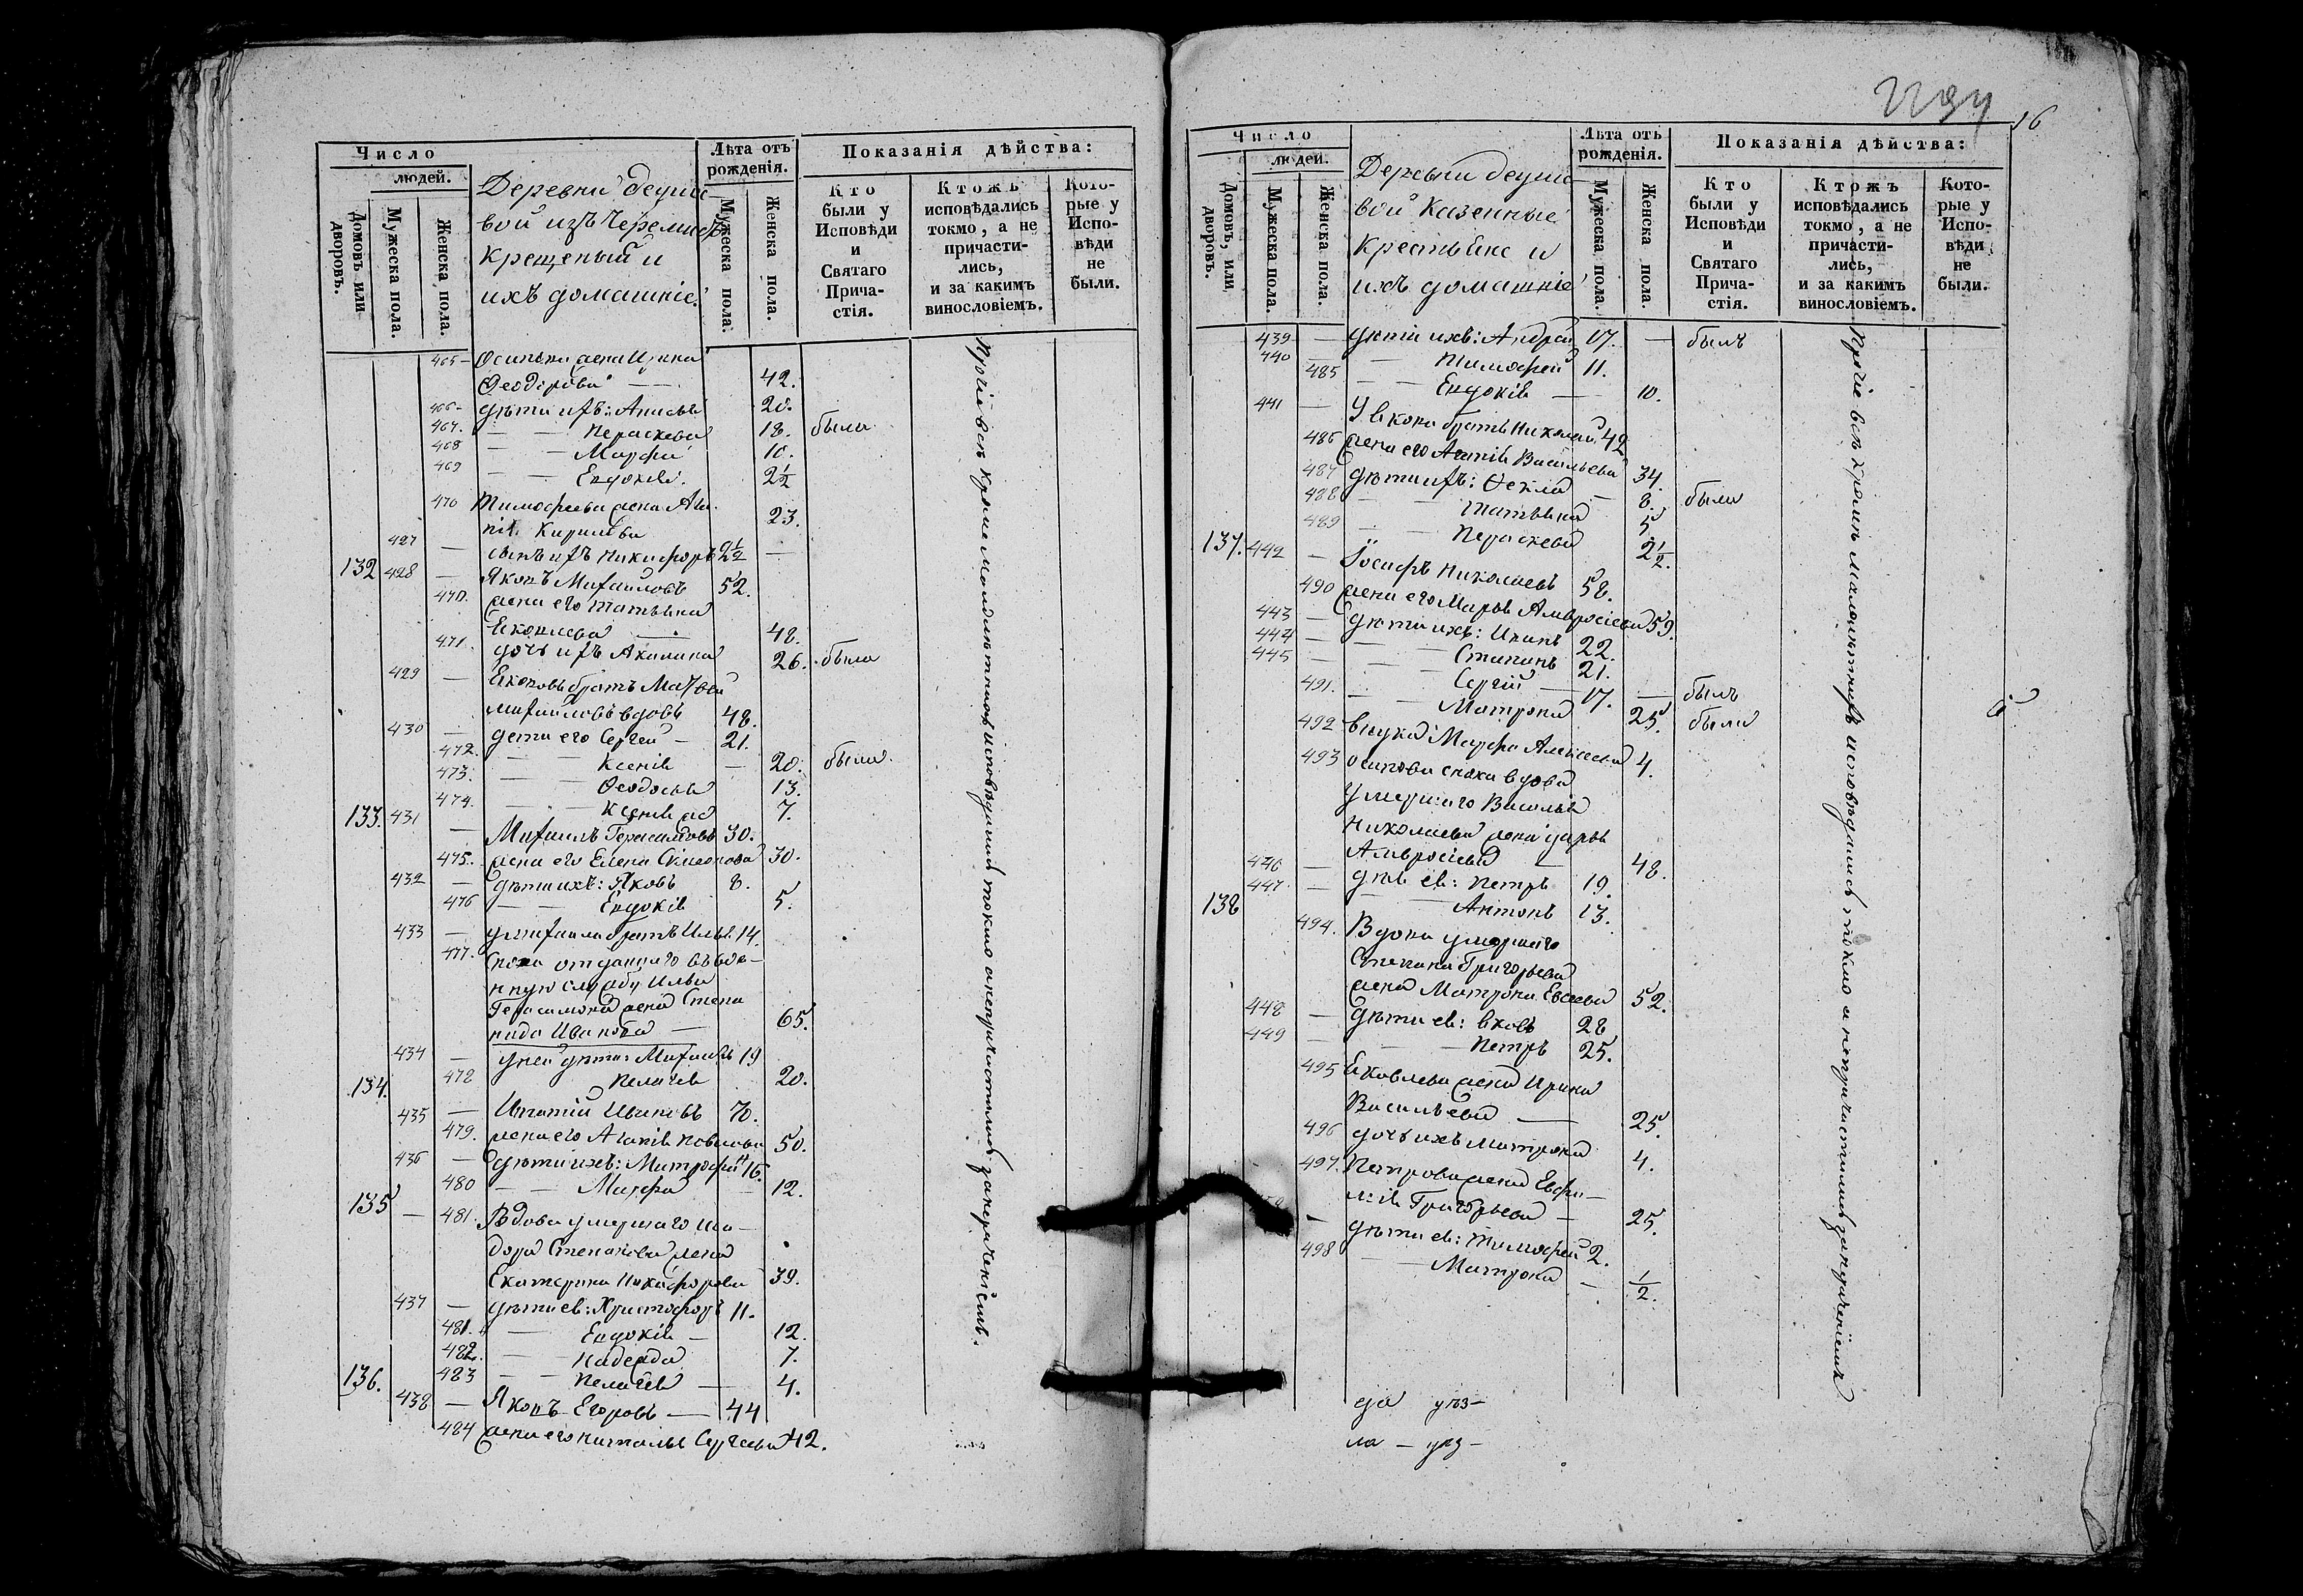 Число
людей.
Домовъ или дворовъ.
Мужеска пола.
Женска пола.
Деревни
вой изъ черемисъ
крещеный и
ихъ домашніе.
Лѣта отъ рожденія.
Мужеска пола.
Женска пола.
Показанія дѣйства:
Кто были у Исповѣди и Святаго Прича-стія.
Ктожъ исповѣдались токмо, а не причасти-лись, и за какимъ винословіемъ.
Кото-рые у Испо-вѣди не были.
465 – Осипова жена Ирина
Феодорова — 42.
466 – дѣти ихъ: Анисья 20.
467. — — Параскева 18. была
468 — — Марфа 10.
469 — — Евдокія. 2½
470 Тимофеева жена Ага-
пія Кирилова 23.
427 — сынъ ихъ Никифоръ 2½ —
132 428 — Яковъ Михайловъ 52.
470. жена его Татьяна
Яковлева — 48.
471. дочь ихъ Акилина 26. была
429 — Якововъ братъ Матвей
Михайловъ вдовъ 48.
430 — дети его Сергей – 21.
472. — — Ксенія — 20. была
473. — — Феодосья 13.
474. — — Ксенія 7.
133. 431 — Михаилъ Герасимовъ 30.
475. жена его Елена Симеонова 30.
432 — дѣти ихъ: Яковъ 8.
476 — — Евдокія 5.
433 — у Михаила братъ Илья 14.
477. Сноха отданнаго въ вое-
нную службу Ильи
Герасимова жена Степа
нида Иванова — 65.
434 — у ней дѣти: Михаилъ 19
478 Пелагея 20.
134. 435 — Игнатій Ивановъ 70.
479. жена его Агапія Павлова 50.
436 — дѣти ихъ: Митрофій 16.
480 — — Марфа — 12.
135 — 481. Вдова умершаго Иси-
дора Степанова жена
Екатерина Никифорова 39.
437 — дѣти ея: Христофоръ 11.
481. — Евдокія — 12.
482. — Надежда 7.
483 — — Пелагея — 4.
136. 438 — Яковъ Егоровъ — 44
484 жена его Наталья Сергеева 42.
Прочіе всѣ кроме малолѣтнихъ исповѣдались токмо а непричастились за нераченіемъ.
16
Число
людей.
Домовъ, или дворовъ.
Мужеска пола.
Женска пола.
Деревни
вой казенные
крестьяне и
ихъ домашніе
Лѣта отъ рожденія.
Мужеска пола.
Женска пола.
Показанія дѣйства:
Кто были у Исповѣди и Святаго Прича-стія.
Ктожъ исповѣдались токмо, а не причасти-лись, и за какимъ винословіемъ.
Кото-рые у Испо-вѣди не были.
439 — дѣти ихъ: Андрей 17. — былъ
440 — — Тимофей 11.
485 — — Евдокія — 10.
441 — У Якова братъ Николай 42
486 жена его Агапія Васильева 34.
487 дѣти ихъ: Фекла — 8. была
488 — — Татьяна 5
489 — — Параскева 2½.
137. 442 — Іосифъ Николаевъ 58.
490 жена его Марья Амвросіева 59.
443 — дѣти ихъ: Иванъ 22.
444 — — Степанъ 21.
445 — — Сергій — 17. — былъ
491. — Матрона 25. была
492 внука Марфа Алексеева 4.
493 Осипова сноха вдова
умершаго Василья
Николаева жена Дарья
Амвросіева — 48.
446 — дѣти ея: Петръ 19.
447 — — Антонъ 13.
138
494. Вдова умершаго
Степана Григорьева
жена Матрона Евсеева 52.
448 — дѣти ея: Яковъ 28
449 — — Петръ 25.
495 Яковлева жена Ирина
Васильева — 25.
496 дочь ихъ Матрона 4.
497. Петрова жена Евфи-
мія Григорьева — 25.
— дѣти ея: Тимофей 2.
498 — Матрона — ½.
Прочіе всѣ кромѣ малолѣтнихъ исповѣдались токмо а непричастились за нераченіемъ